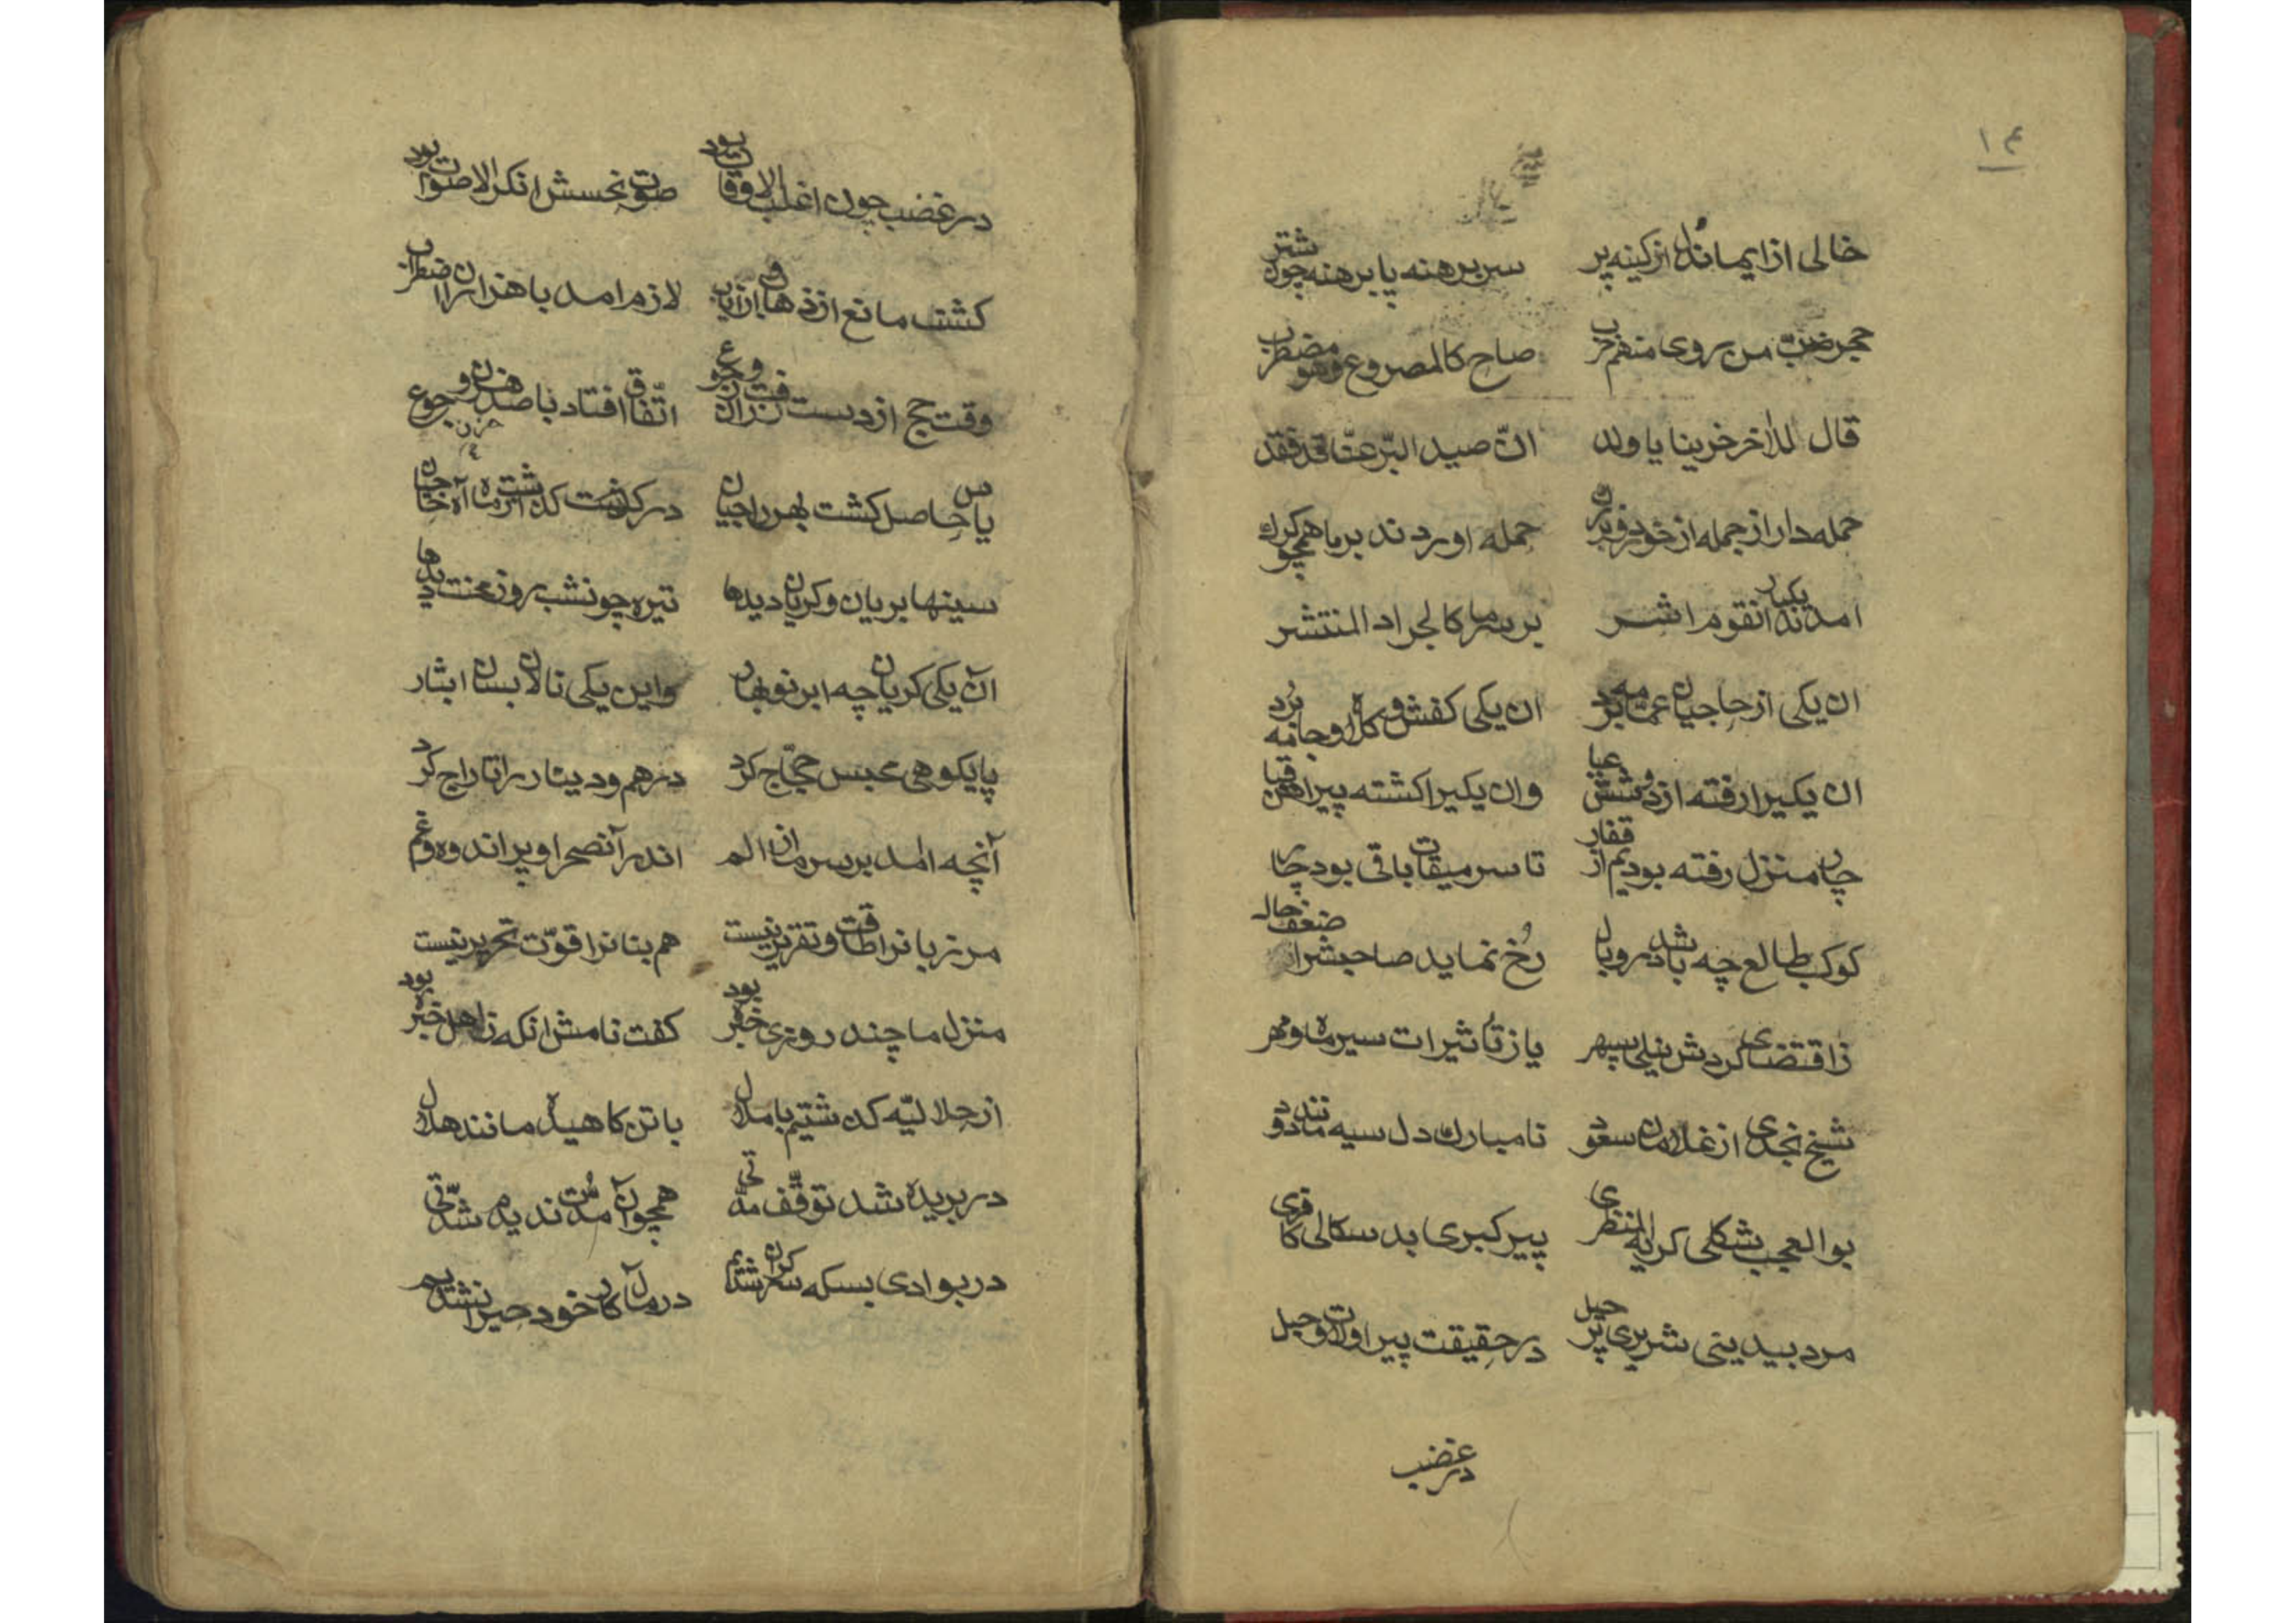 ١٤
خالی از ایمان دل از کینه پر سر برهنه پا برهنه چون شتر
حجر ضرب من روی منهم حرب صاح کالمصروع وهو مضطرب
قال للاخر خربنا یا ولد انّ صید البّر عنّا قد فقد
حمله دار از جمله از خود فربزرک حمله اوردند بر ما همچو کرک
امدند انقوم یکبار اشر بر سر ما کالجراد المنتشر
ان یکی از حاجیان عمامه برد ان یکی کفش و کلاه و جامه بُرد
ان یکیرا رفته از دوشش عبا وان یکیرا کشته پیراهن قبا
چار منزل رفته بودیم از قفار تا سر میقات باقی بود چار
کوکب طالع چه باشد در وبال رُخ نماید صاحبشرا ضعف حال
ز اقتضای کردش نیلی سپهر یا ز تأثیرات سیر ماه و مهر
شیخ نجدی از غلامان سعود نامبارك دل سیه مانند دود
بوالعجب شکلی کریه المنظری پیر کبری بد سکالی کافری
مرد بیدینی شریری پر حیل در حقیقت پیر اولات و حبل
در غضب
در غضب چون اغلب الاوقات بود صوت نحسش انکر الاصوات بود
کشت مانع از ذهاب و از ایاب لازم امد با هزاران اضطراب
وقت حج از دست رفت و زان وجوع اتّفاق افتاد با صد حزن رجوع
یاس حاصل کشت بهر حاجیان درکذشت کذشت از ما آه جان
سینها بریان و کریان دیدها تیره چون شب روز محنت دیدها
آن یکی کریان چه ابر نو بهار واین یکی نالان بسان ابشار
پایکوهی حبس حجّاج کرد درهم و دینار را تاراج کرد
آنچه امد بر سر ما زان الم اندر آنصحرا و پر اندوه و غم
مر زبانرا طاقت و تقریر نیست هم بنانرا قوّت تحریر نیست
منزل ما چند روزی خبره بود کفت نامش انکه ز اهل خبره بود
از جلالیّه کذشتیم با ملال با تن کاهیده مانند هلال
در بریده شد توقّف مدّتی همچو آن مُدّت ندیدم شدّتی
در بوادی بسکه سرکران شدیم در مآل کار خود حیران شدیم